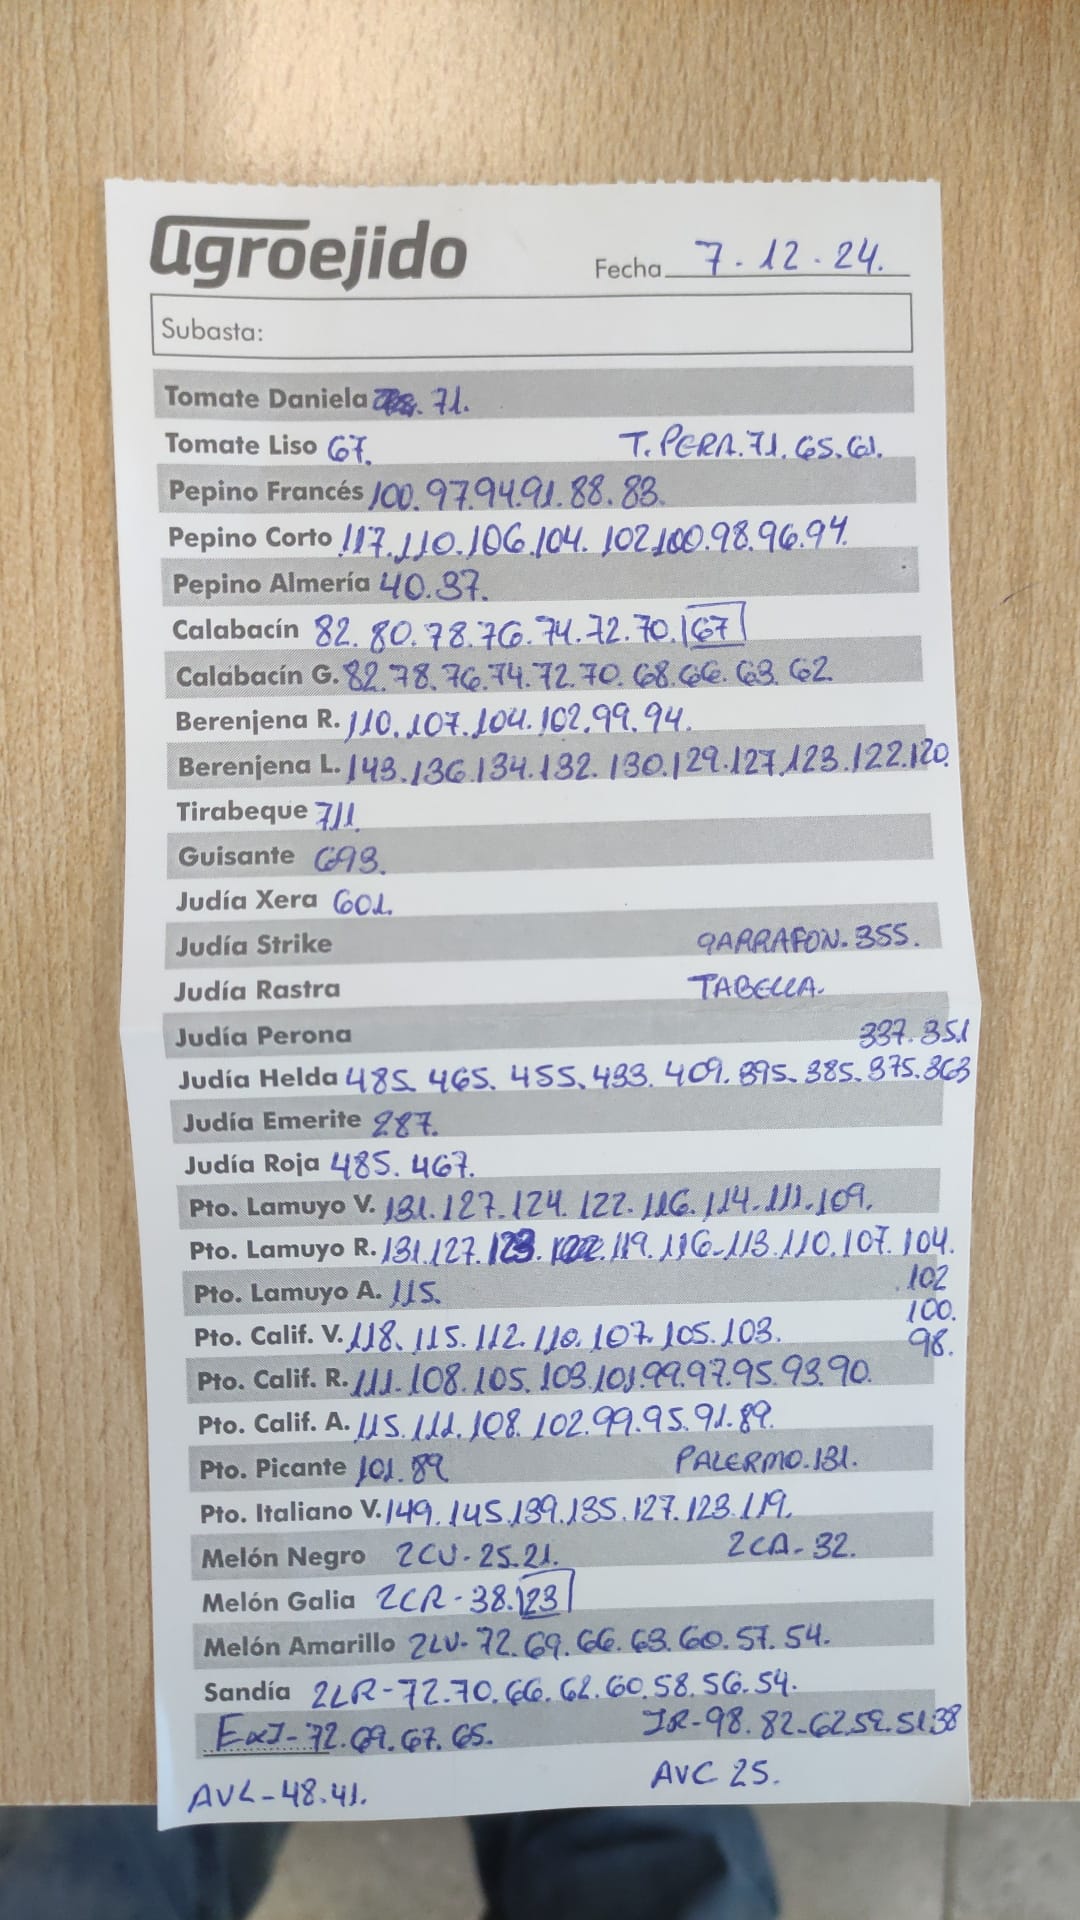 agroejido
Fecha 7.12.24.
Subasta:
Tomate Daniela 71.
Tomate Liso 67. T.PERA.71.65.61.
Pepino Francés 100.97.94.91.88.83.
Pepino Corto 117.110.106.104.102.100.98.96.94.
Pepino Almería 40.37.
Calabacín 82.80.78.76.74.72.70.67
Calabacín G. 82.78.76.74.72.70.68.66.63.62.
Berenjena R. 110.107.104.102.99.94.
Berenjena L. 143.136.134.132.130.129.127.123.122.120.
Tirabeque 711.
Guisante 693.
Judía Xera 601.
Judía Strike GARRAFON.355.
Judía Rastra TABELLA.
Judía Perona 337.351
Judía Helda 485.465.455.433.409.395.385.375.363
Judía Emerite 287.
Judía Roja 485.467.
Pto. Lamuyo V. 131.127.124.122.116.114.111.109.
Pto. Lamuyo R. 131.127.123.122.119.116.113.110.107.104.
Pto. Lamuyo A. 115. 102
100.
Pto. Calif. V. 118.115.112.110.107.105.103. 98.
Pto. Calif. R. 111.108.105.103.101.99.97.95.93.90.
Pto. Calif. A. 115.111.108.102.99.95.91.89.
Pto. Picante 101.89 PALERMO.131.
Pto. Italiano V. 149.145.139.135.127.123.119.
Melón Negro 2CV-25.21. 2CA-32.
Melón Galia 2CR-38.23
Melón Amarillo 2LV-72.69.66.63.60.57.54.
Sandía 2LR-72.70.66.62.60.58.56.54.
ExJ-72.69.67.65. JR-98.82-62.59.51.38
AVL-48.41. AVC 25.